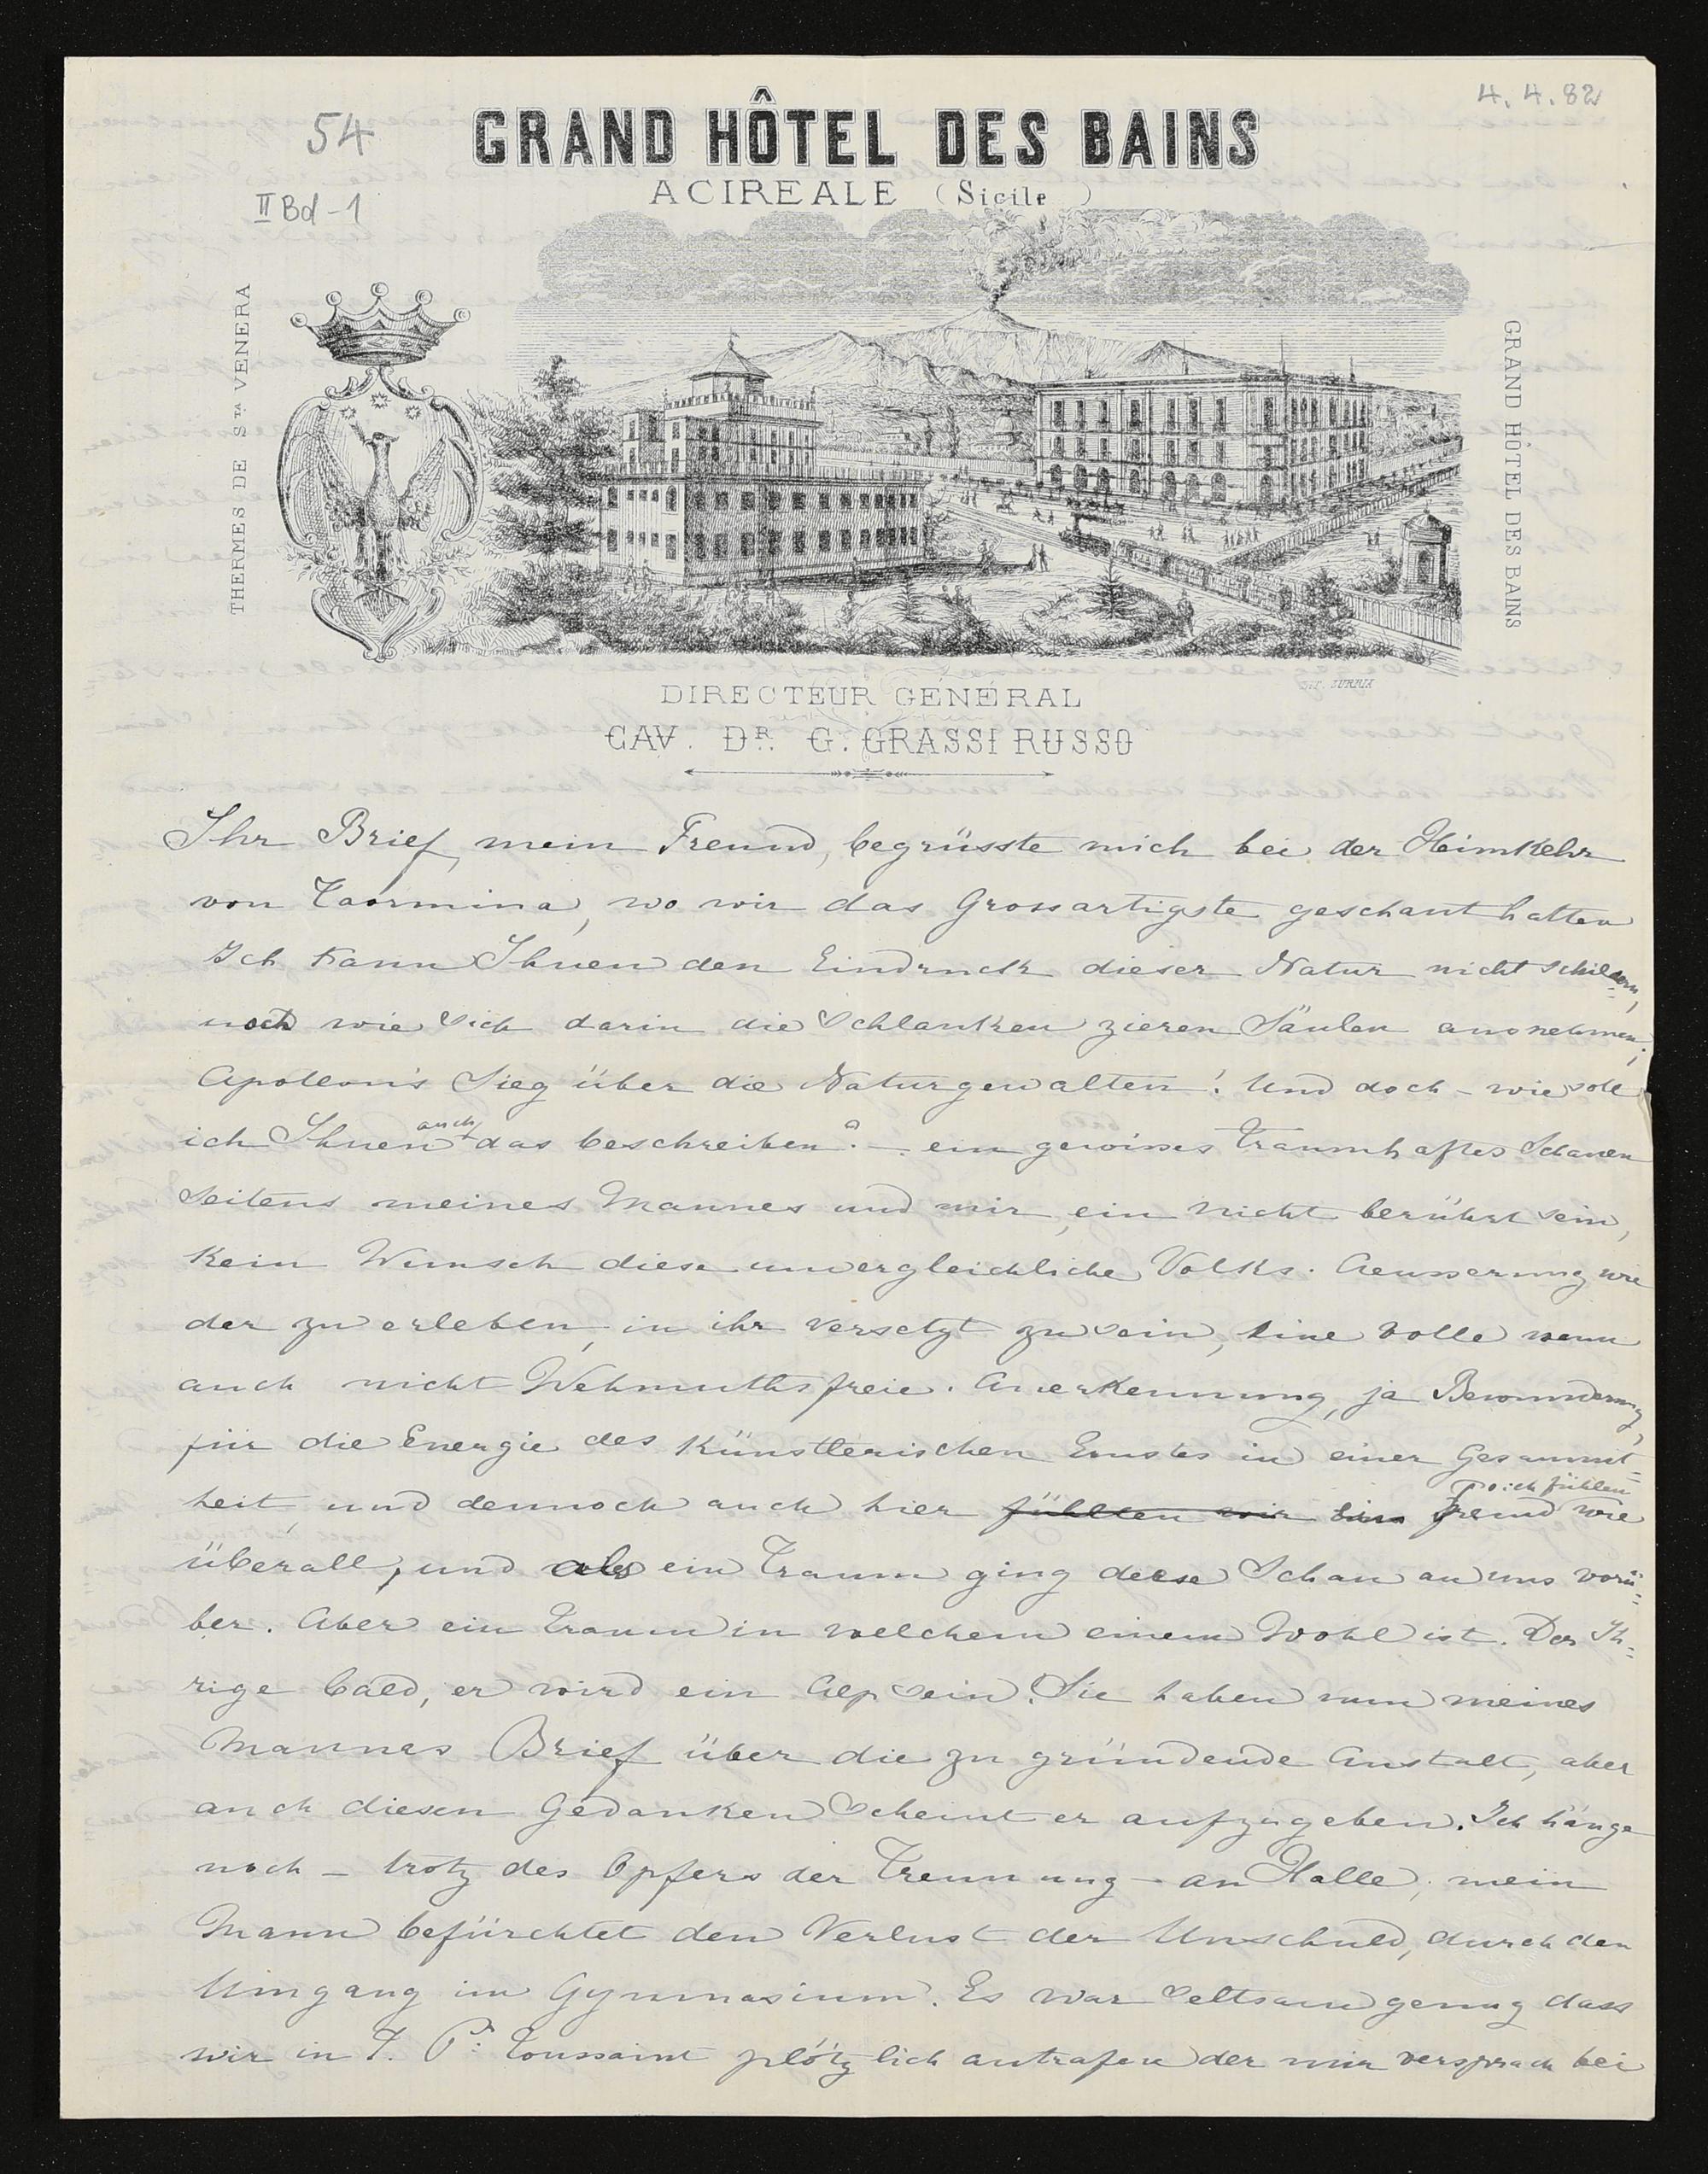 4.4.82
54
GRAND HÔTEL DES BAINS
ACIREALE (Sicile)
II Bd - 1
THERMES DE STA VENERA
GRAND HÔTEL DES BAINS
DIRECTEUR GÉNÉRAL
CAV. DR. G. GRASSI RUSSO
Ihr Brief, mein Freund, begrüsste mich bei der Heimkehr
von Taormina, wo wir das Grossartigste geschaut hatten
Ich kann Ihnen den Eindruck dieser Natur nicht schildern,
noch wie sich darin die schlanken zieren Säulen ausnehmen;
Apollon's Sieg über die Naturgewalten! Und doch – wie soll
ich Ihnen auch das beschreiben? – ein gewisses traumhaftes Schauen
Seitens meines Mannes und mir, ein nicht berührt sein,
Kein Wunsch diese unvergleichliche Volks-Aeusserung wie
der zu erleben, in ihr versetzt zu sein, eine volle wenn
auch nicht Wehmuthsfreie Anerkennung, ja Bewunderung,
für die Energie des künstlerischen Ernstes in einer Gesammt-
heit, und dennoch auch hier fühlten wir uns fremd wie
so ich fühlen
überall, und als ein Traum ging diese Schau an uns vorü-
ber. Aber ein Traum in welchem einem Wohl ist. Der Ih-
rige bald, er wird ein Alp sein! Sie haben nun meines
Mannes Brief über die zu gründende Anstalt, aber
auch diesen Gedanken scheint er aufzugeben. Ich hänge
noch – trotz des Opfers der Trennung – an Halle, mein
Mann befürchtet den Verlust der Unschuld, durch den
Umgang im Gymnasium. Es war seltsam genug dass
wir in T. Pr. Toussaint plötzlich antrafen der mir versprach bei